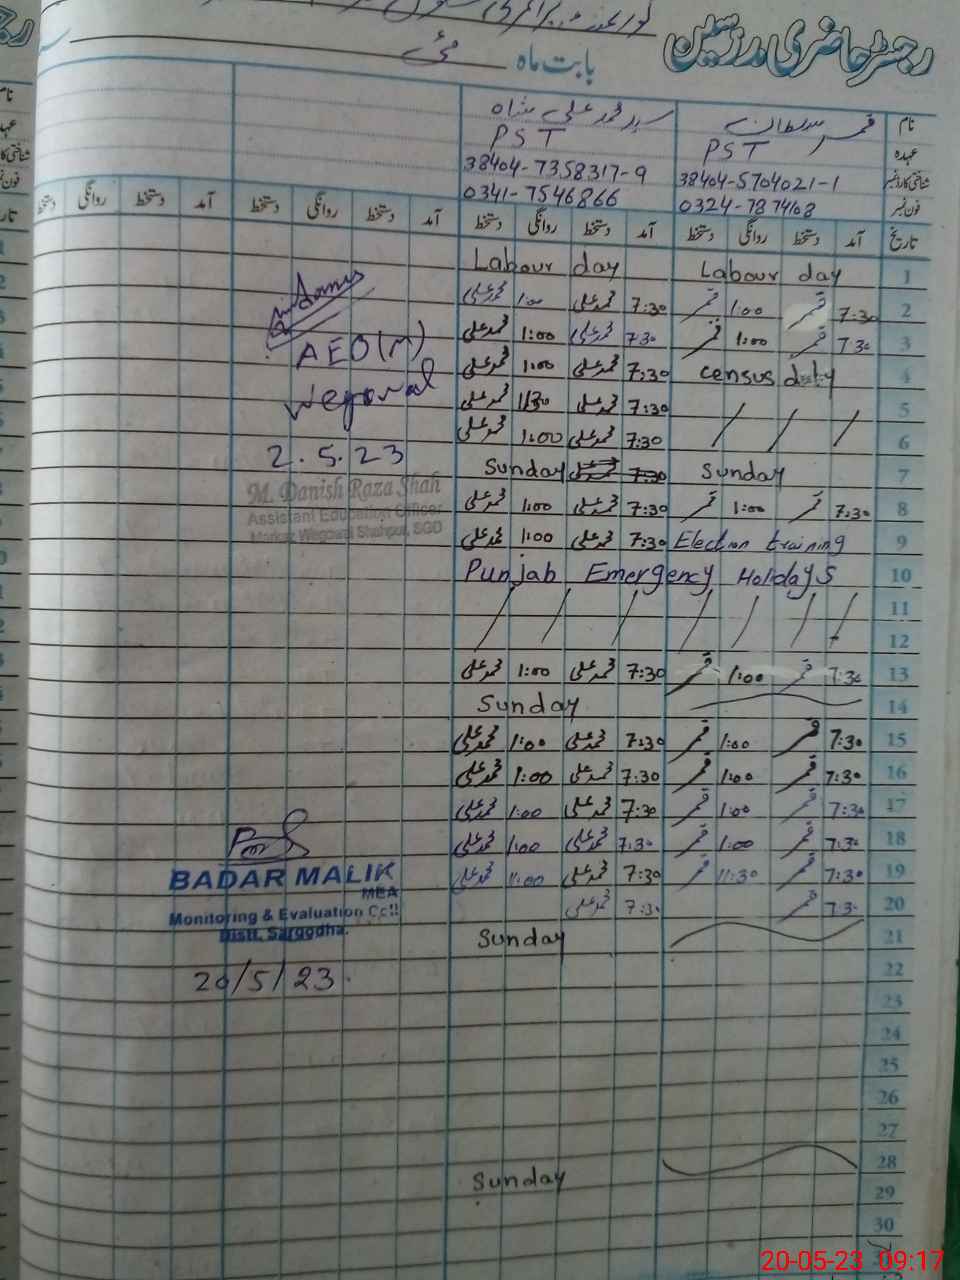 رجسٹر حاضری مدرسین
بابت ماہ مئی
نام قمر سلطان سید محمد علی شاہ
عہدہ PST PST
شناختی کارڈ نمبر 38404-5704021-1 38404-7358317-9
فون نمبر 0324-7874108 0341-7546866
تاریخ آمد دستخط روانگی دستخط آمد دستخط روانگی دستخط آمد دستخط روانگی دستخط آمد دستخط روانگی
1 Labour day Labour day
2 7:30 قمر 1:00 قمر 7:30 محمد علی 1:00 محمد علی
3 7:30 قمر 1:00 قمر 7:30 محمد علی 1:00 محمد علی
4 census duty 7:30 محمد علی 1:00 محمد علی
5 / / / 7:30 محمد علی محمد علی
6 7:30 محمد علی 1:00 محمد علی
7 Sunday 7:30 محمد علی Sunday
8 7:30 قمر 1:00 قمر 7:30 محمد علی 1:00 محمد علی
9 Election training 7:30 محمد علی 1:00 محمد علی
10 Punjab Emergency Holidays
11 / / / / / / /
12
13 7:30 قمر 1:00 قمر 7:30 محمد علی 1:00 محمد علی
14 Sunday
15 7:30 قمر 1:00 قمر 7:30 محمد علی 1:00 محمد علی
16 7:30 قمر 1:00 قمر 7:30 محمد علی 1:00 محمد علی
17 7:30 قمر 1:00 قمر 7:30 محمد علی 1:00 محمد علی
18 7:30 قمر 1:00 قمر 7:30 محمد علی 1:00 محمد علی
19 7:30 قمر 11:30 قمر 7:30 محمد علی 11:00 محمد علی
20 7:30 قمر 7:30 محمد علی
21 Sunday
22
23
24
25
26
27
28 Sunday
29
30
AEO(M)
Wegowal
2.5.23
M. Danish Raza Shah
Assistant Education Officer
Markaz Wegowal Shahpur, SGD
BADAR MALIK
MEA
Monitoring & Evaluation Cell
Distt. Sargodha.
20/5/23.
20-05-23 09:17